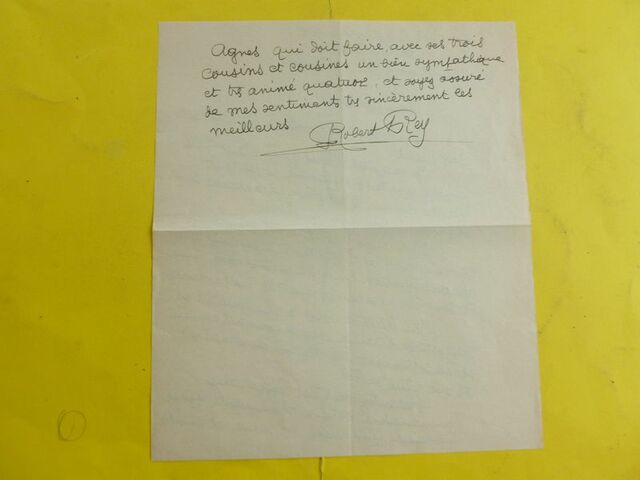 Agnes qui doit faire, avec ses trois
cousins et cousines un bien sympathique
et trs animé quatuor, et soyez assuré
de mes sentiments trs sincèrement les
meilleurs Robert Rey